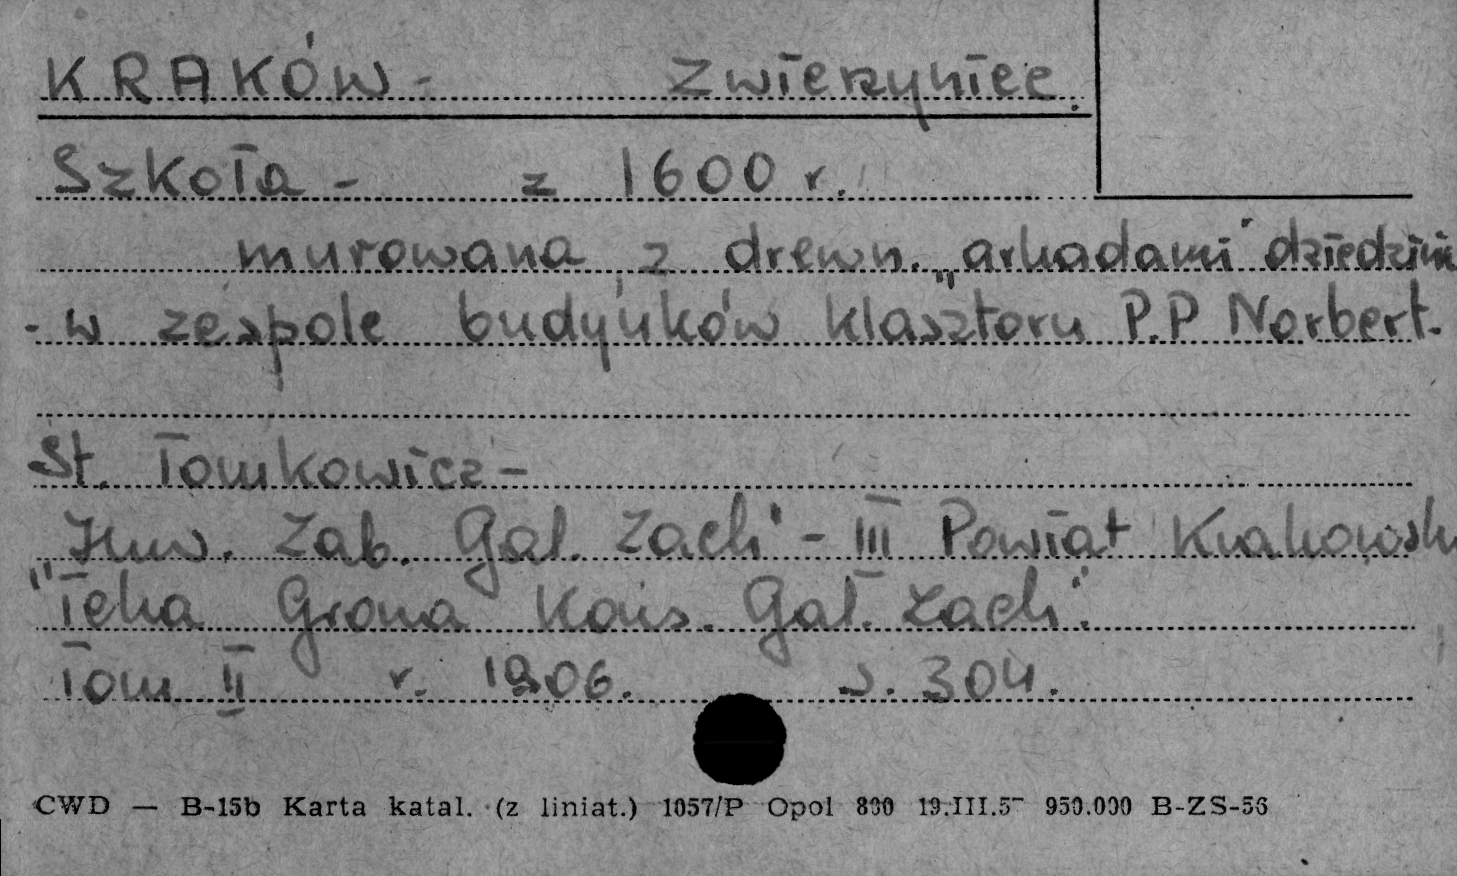 KRAKÓW - Zwierzyniec.
Szkoła - z 1600 r.
murowana z drewn. „arkadami" dziedziń
- w zespole budynków klasztoru P.P Norbert.
St. Tomkowicz -
Inw. Zab. Gal. Zach" - III Powiat Krakowski
"Teka Grona Kons. Gal. Zach".
Tom II r. 1906. s. 304.
CWD — B-15b Karta katal. (z liniat.) 1057/P Opol 800 19.III.5 950.000 B-ZS-56